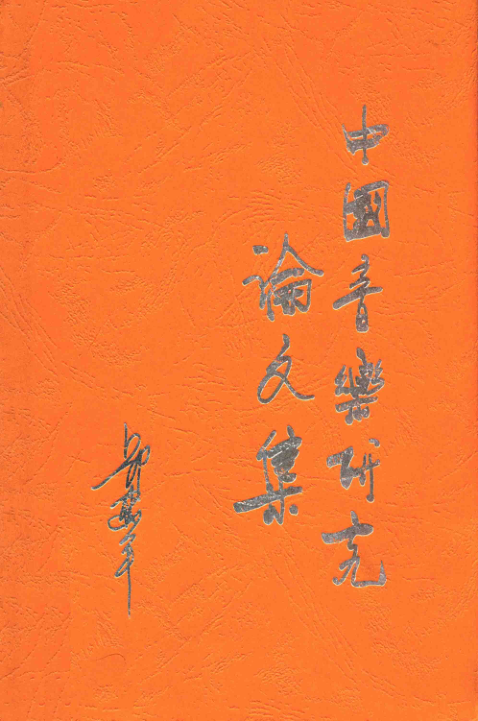 中國音樂研究
論文集